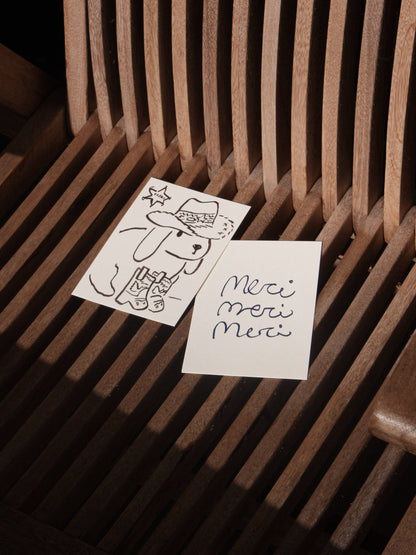 Merci
merci
Merci